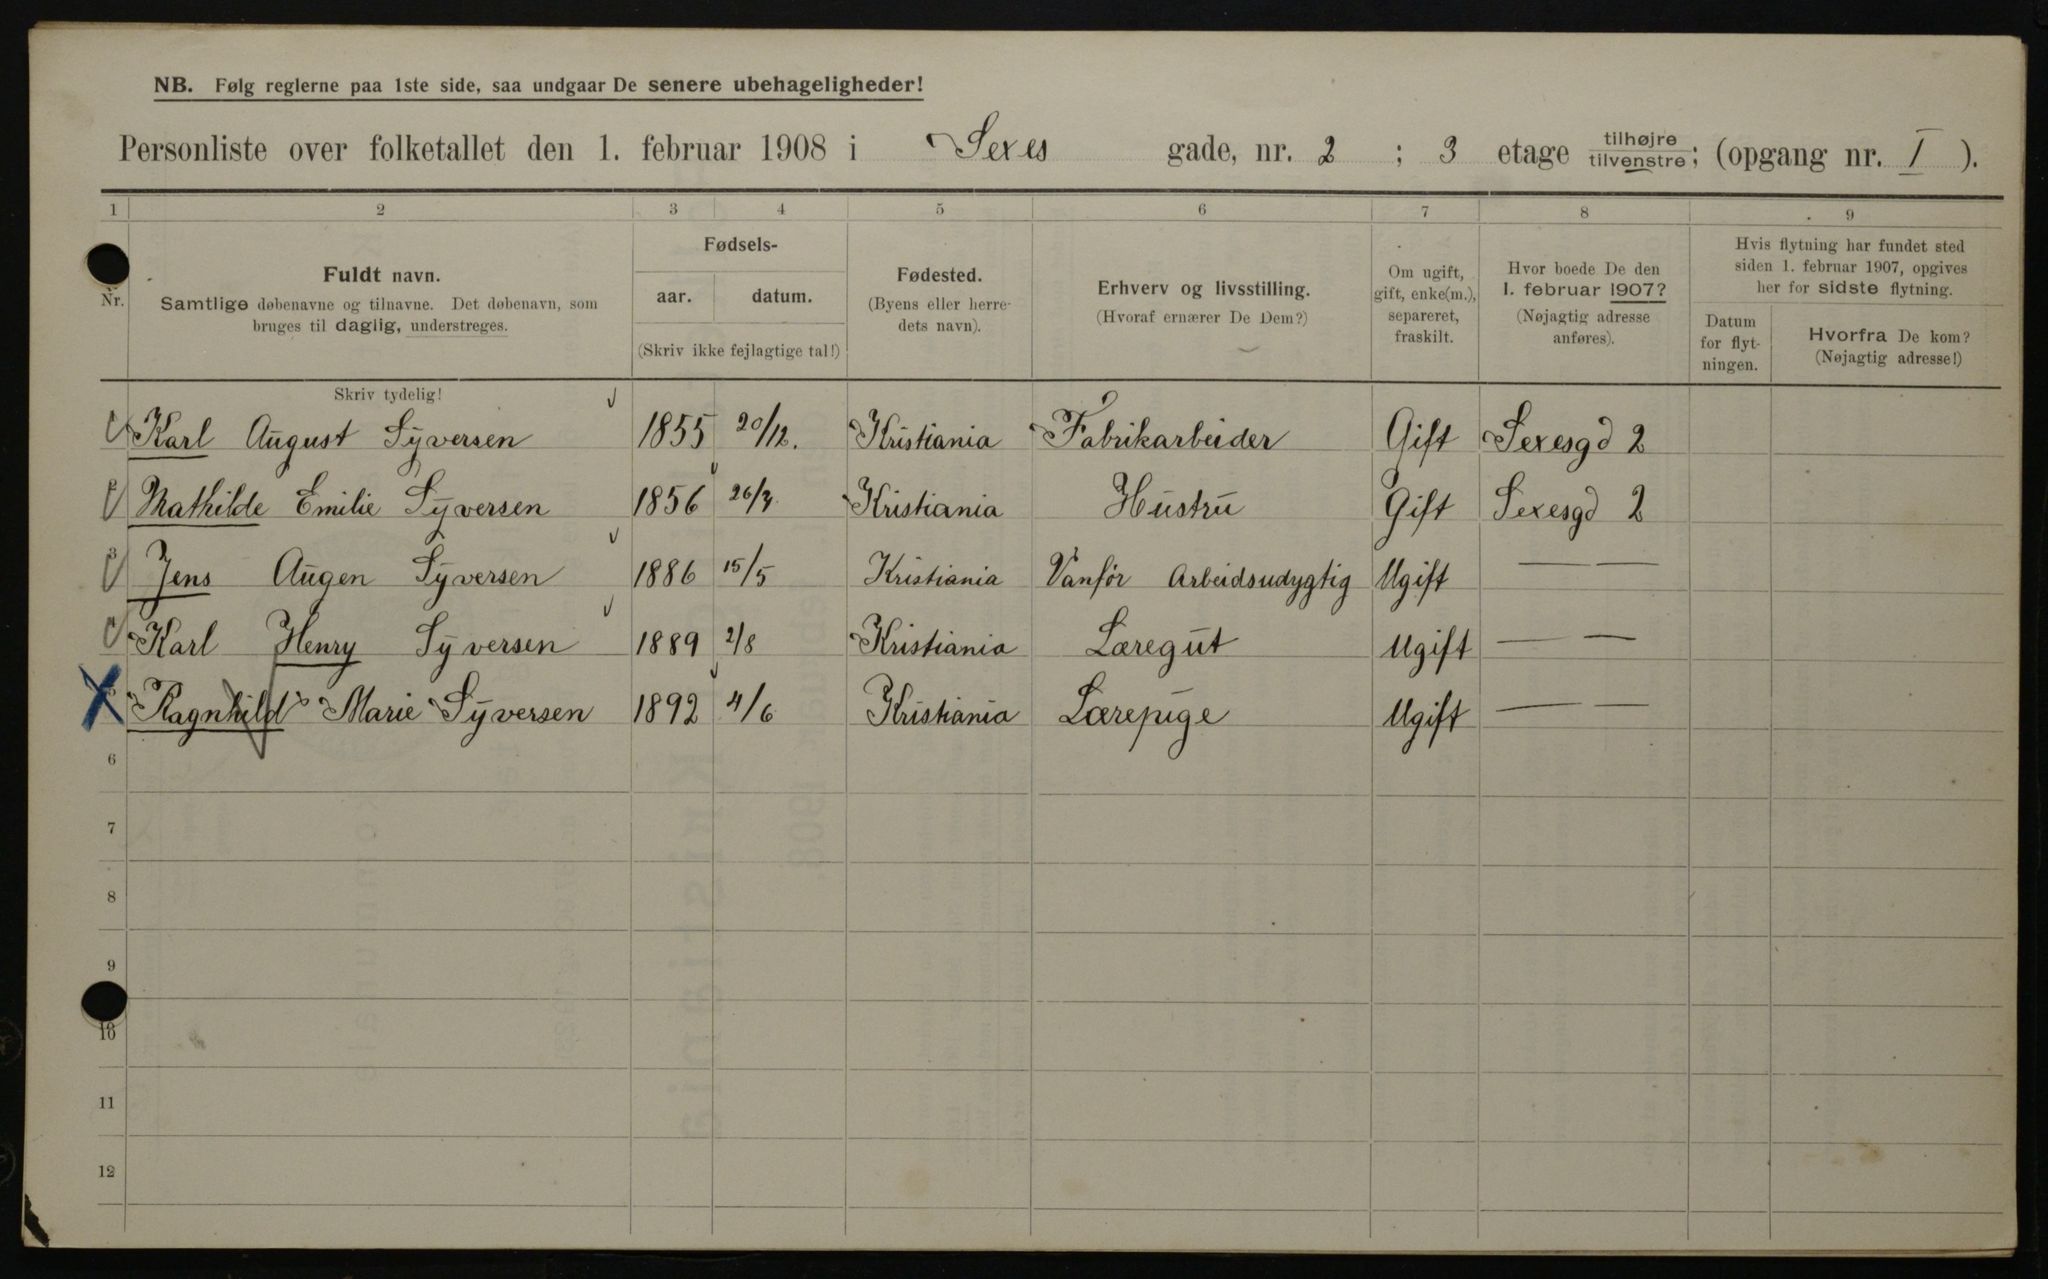 NB. Følg reglerne paa 1ste side, saa undgaar De senere ubehageligheder!
Personliste over folketallet den 1. februar 1908 i Sexes gade, nr. 2 ; 3 etage tilhøjre tilvenstre; (opgang nr. I ).
1 2 3 4 5 6 7 8 9
Nr.
Fuldt navn.
Samtlige døbenavne og tilnavne. Det døbenavn, som
bruges til daglig, understreges.
Fødsels-
aar. datum.
(Skriv ikke fejlagtige tal!)
Fødested.
(Byens eller herre-
dets navn).
Erhverv og livsstilling.
(Hvoraf ernærer De Dem?)
Om ugift,
gift, enke(m.),
separeret,
fraskilt.
Hvor boede De den
1. februar 1907?
(Nøjagtig adresse
anføres).
Hvis flytning har fundet sted
siden 1. februar 1907, opgives
her for sidste flytning.
Datum
for flyt-
ningen.
Hvorfra De kom?
(Nøjagtig adresse!)
Skriv tydelig!
Karl August Syversen 1855 20/12. Kristiania Fabrikarbeider Gift Sexesgd 2
2 Mathilde Emilie Syversen 1856 Kristiania Hustru Gift Sexesgd 2
3 Jens Augen Syversen 1886 15/5 Kristiania Vanfør Arbeidsudygtig Ugift — —
4 Karl Henry Syversen 1889 2/8 Kristiania Læregut Ugift — —
5 Ragnhild Marie Syversen 1892 4/6 Kristiania Lærepige Ugift — —
6
7
8
9
10
11
12